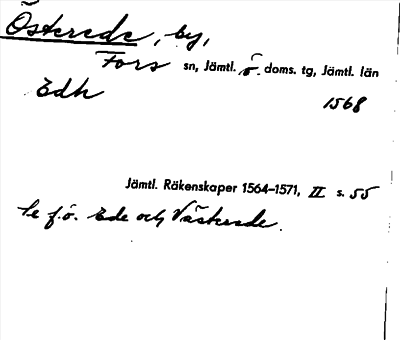 Österede, by,
Fors sn, Jämtl. ö. doms. tg, Jämtl. län
Edh 1568
Jämtl. Räkenskaper 1564–1571, II s. 55
Se f.ö. Ede och Västerede.